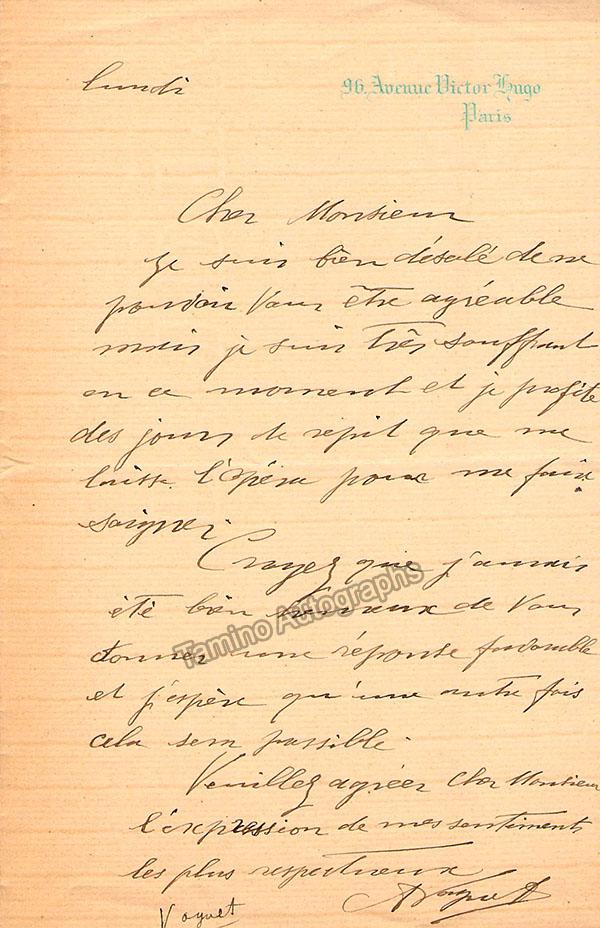 lundi
96, Avenue Victor Hugo
Paris
Cher Monsieur
Je suis bien désolé de ne
pouvoir vous être agréable
mais je suis très souffrant
en ce moment et je profite
des jours de répit que me
laisse l'opéra pour me faire
soigner.
Croyez que j'aurais
été bien heureux de vous
donner une réponse favorable
et j'espère qu'une autre fois
cela sera possible.
Veuillez agréer Cher Monsieur
l'expression de mes sentiments
les plus respectueux
Vaguet
Tamino Autographs